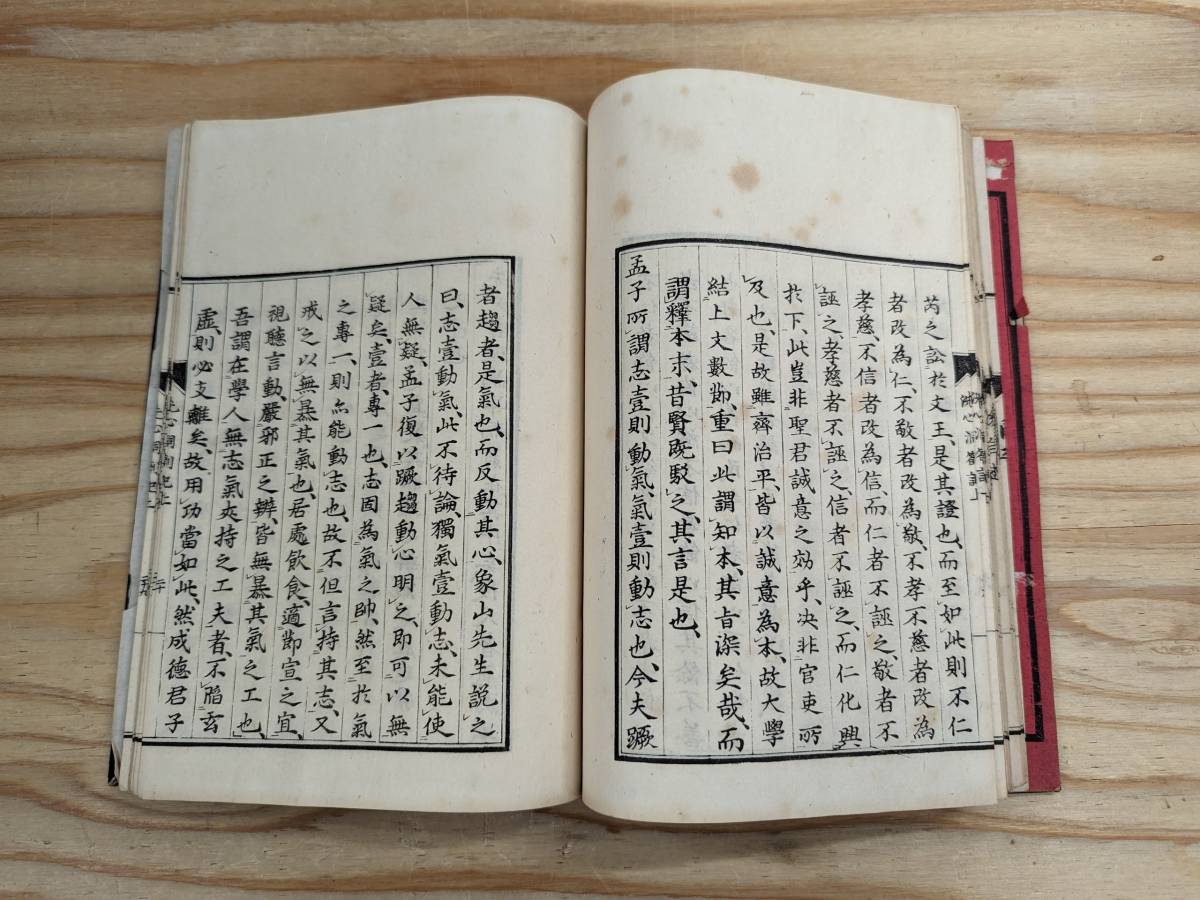 芮之訟於文王、是其證也、而至如此則不仁
者改為仁、不敬者改為敬、不孝不慈者改為
孝慈、不信者改為信、而仁者不誣之、敬者不
誣之、孝慈者不誣之、信者不誣之、而仁化興
於下、此豈非聖君誠意之効乎、决非官吏所
及也、是故雖齊治平、皆以誠意為本、故大學
結上文數節、重曰此謂知本、其旨深矣哉、而
謂釋本末、昔賢既駁之、其言是也、
孟子所謂志壹則動氣、氣壹則動志也、今夫蹶
者趨者、是氣也、而反動其心、象山先生説之
曰、志壹動氣、此不待論、獨氣壹動志、未能使
人無疑、孟子復以蹶趨動心明之、即可以無
疑矣、壹者、專一也、志固為氣之帥、然至於氣
之專一、則亦能動志也、故不但言持其志、又
戒之以無暴其氣也、居處飲食、適節宣之宜、
視聽言動、嚴邪正之辨、皆無暴其氣之工也、
吾謂在學人無志氣夾持之工夫者、不陷玄
虚、則必支離矣、故用功當如此、然成德君子